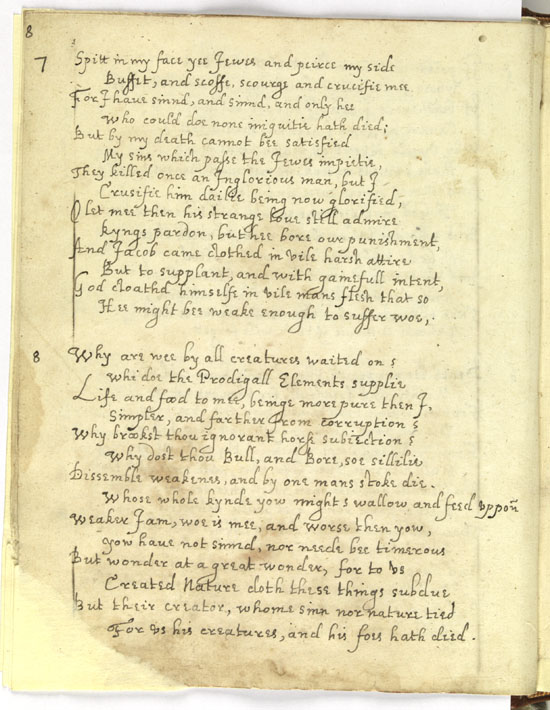 8
7 Spitt in my face yee Jewes and peirce my side
Buffit, and scoffe, scourge and crucifie mee
For J have sinnd, and sinnd, and only hee
Who could doe none iniquitie hath died;
But by my death cannot bee satisfied
My sins which passe the Jewes impietie,
They killed once an Inglorious man, but J
Crucifie him dailie being now glorified;
O let mee then his strange love still admire
kyngs pardon, but hee bore our punishment,
And Jacob came clothed in vile harsh attire
But to supplant, and with gainefull intent,
God cloathd himselfe in vile mans flesh that so
Hee might bee weake enough to suffer woe,.
8 Why are wee by all creatures waited on ?
Whi doe the Prodigall Elements supplie
Life and food to mee, beinge more pure then J.
Simpler, and farther from corruption ?
Why brookst thou ignorant horse subiection ?
Why dost thou Bull, and Bore, soe sillilie
Dissemble weakeness, and by one mans stoke die.
Whose whole kynde yow might swallow and feed vppon
Weaker J am, woe is mee, and worse then yow,
yow have not sinnd, nor neede bee timerous
But wonder at a great wonder, for to vs
Created Nature doth these things subdue
But their creator, whome sinn nor nature tied
For vs his creatures, and his foes hath died.